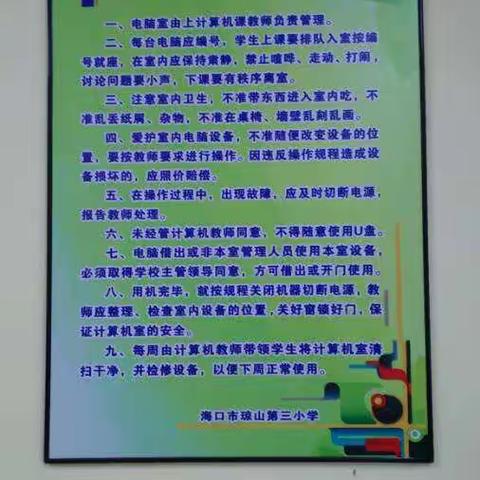 一、电脑室由上计算机课教师负责管理。
二、每台电脑应编号，学生上课要排队入室按编
号就座，在室内应保持肃静，禁止喧哗、走动、打闹，
讨论问题要小声，下课要有秩序离室。
三、注意室内卫生，不准带东西进入室内吃，不
准乱丢纸屑、杂物，不准在桌椅、墙壁乱刻乱画。
四、爱护室内电脑设备，不准随便改变设备的位
置，要按教师要求进行操作。因违反操作规程造成设
备损坏的，应照价赔偿。
五、在操作过程中，出现故障，应及时切断电源，
报告教师处理。
六、未经管计算机教师同意，不得随意使用U盘。
七、电脑借出或非本室管理人员使用本室设备，
必须取得学校主管领导同意，方可借出或开门使用。
八、用机完毕，就按规程关闭机器切断电源，教
师应整理、检查室内设备的位置，关好窗锁好门，保
证计算机室的安全。
九、每周由计算机教师带领学生将计算机室清
扫干净，并检修设备，以便下周正常使用。
海口市琼山第三小学